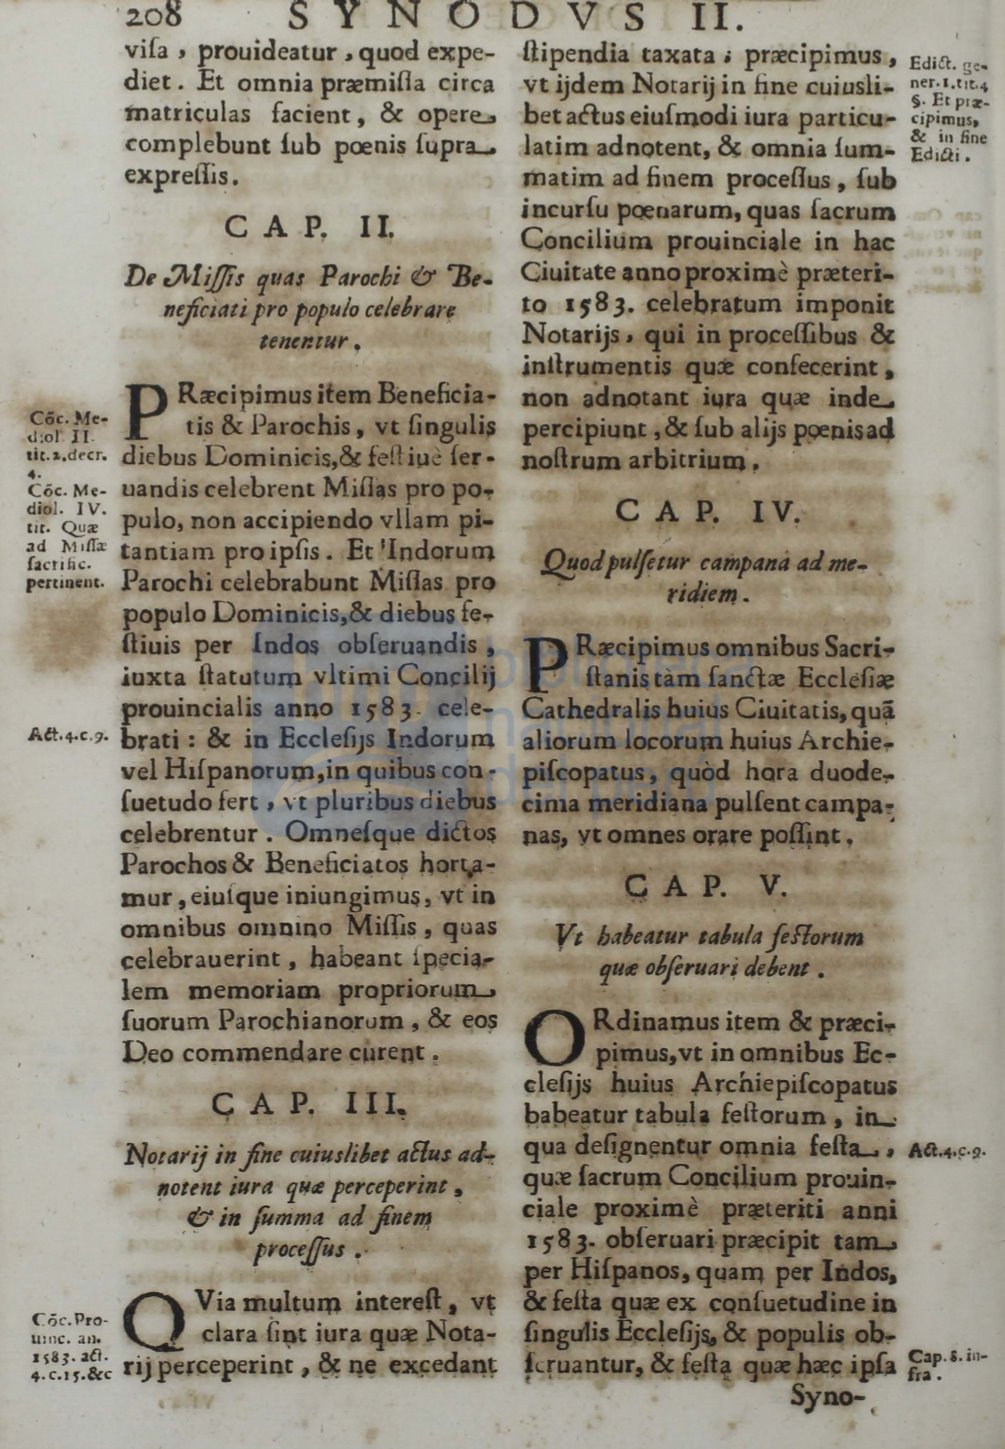 208 SYNODVS II.
viſa, prouideatur, quod expe-
diet. Et omnia præmiſſa circa
matriculas facient, & opere
complebunt ſub pœnis ſupra
expreſſis.
CAP. II.
De Miſſis quas Parochi & Be-
neficiati pro populo celebrare
tenentur.
PRæcipimus item Beneficia-
tis & Parochis, vt ſingulis
diebus Dominicis, & feſtiuè ſer-
uandis celebrent Miſſas pro po-
pulo, non accipiendo vllam pi-
tantiam pro ipſis. Et Indorum
Parochi celebrabunt Miſſas pro
populo Dominicis, & diebus fe-
ſtiuis per Indos obſeruandis,
iuxta ſtatutum vltimi Concilij
prouincialis anno 1583. cele-
brati: & in Eccleſijs Indorum
vel Hiſpanorum, in quibus con-
ſuetudo fert, vt pluribus diebus
celebrentur. Omneſque dictos
Parochos & Beneficiatos horta-
mur, eiuſque iniungimus, vt in
omnibus omnino Miſſis, quas
celebrauerint, habeant ſpecia-
lem memoriam propriorum
ſuorum Parochianorum, & eos
Deo commendare curent.
CAP. III.
Notarij in fine cuiuslibet actus ad-
notent iura quæ perceperint,
& in ſumma ad finem
proceſſus.
QVia multum intereſt, vt
clara ſint iura quæ Nota-
rij perceperint, & ne excedant
Cōc. Me-
diol II.
tit. 2. decr.
4.
Cōc. Me-
diol. IV.
tit. Quæ
ad Miſſæ
ſacrific.
pertinent.
Act. 4. c. 9.
Cōc. Pro-
uinc. an.
1583. act.
4. c. 15. &c
ſtipendia taxata; præcipimus,
vt ijdem Notarij in fine cuiusli-
bet actus eiuſmodi iura particu-
latim adnotent, & omnia ſum-
matim ad finem proceſſus, ſub
incurſu pœnarum, quas ſacrum
Concilium prouinciale in hac
Ciuitate anno proximè præteri-
to 1583. celebratum imponit
Notarijs, qui in proceſſibus &
inſtrumentis quæ confecerint,
non adnotant iura quæ inde
percipiunt, & ſub alijs pœnis ad
noſtrum arbitrium.
CAP. IV.
Quod pulſetur campana ad me-
ridiem.
PRæcipimus omnibus Sacri-
ſtanis tàm ſanctæ Eccleſiæ
Cathedralis huius Ciuitatis, quā
aliorum locorum huius Archie-
piſcopatus, quòd hora duode-
cima meridiana pulſent campa-
nas, vt omnes orare poſſint.
CAP. V.
Vt habeatur tabula feſtorum
quæ obſeruari debent.
ORdinamus item & præci-
pimus, vt in omnibus Ec-
cleſijs huius Archiepiſcopatus
babeatur tabula feſtorum, in
qua deſignentur omnia feſta,
quæ ſacrum Concilium prouin-
ciale proximè præteriti anni
1583. obſeruari præcipit tam
per Hiſpanos, quam per Indos,
& feſta quæ ex conſuetudine in
ſingulis Eccleſijs, & populis ob-
ſeruantur, & feſta quæ hæc ipſa
Syno-
Edict. ge-
ner. 1. tit. 4
§. Et præ-
cipimus,
& in fine
Edicti.
Act. 4. c. 9.
Cap. 8. in-
fra.